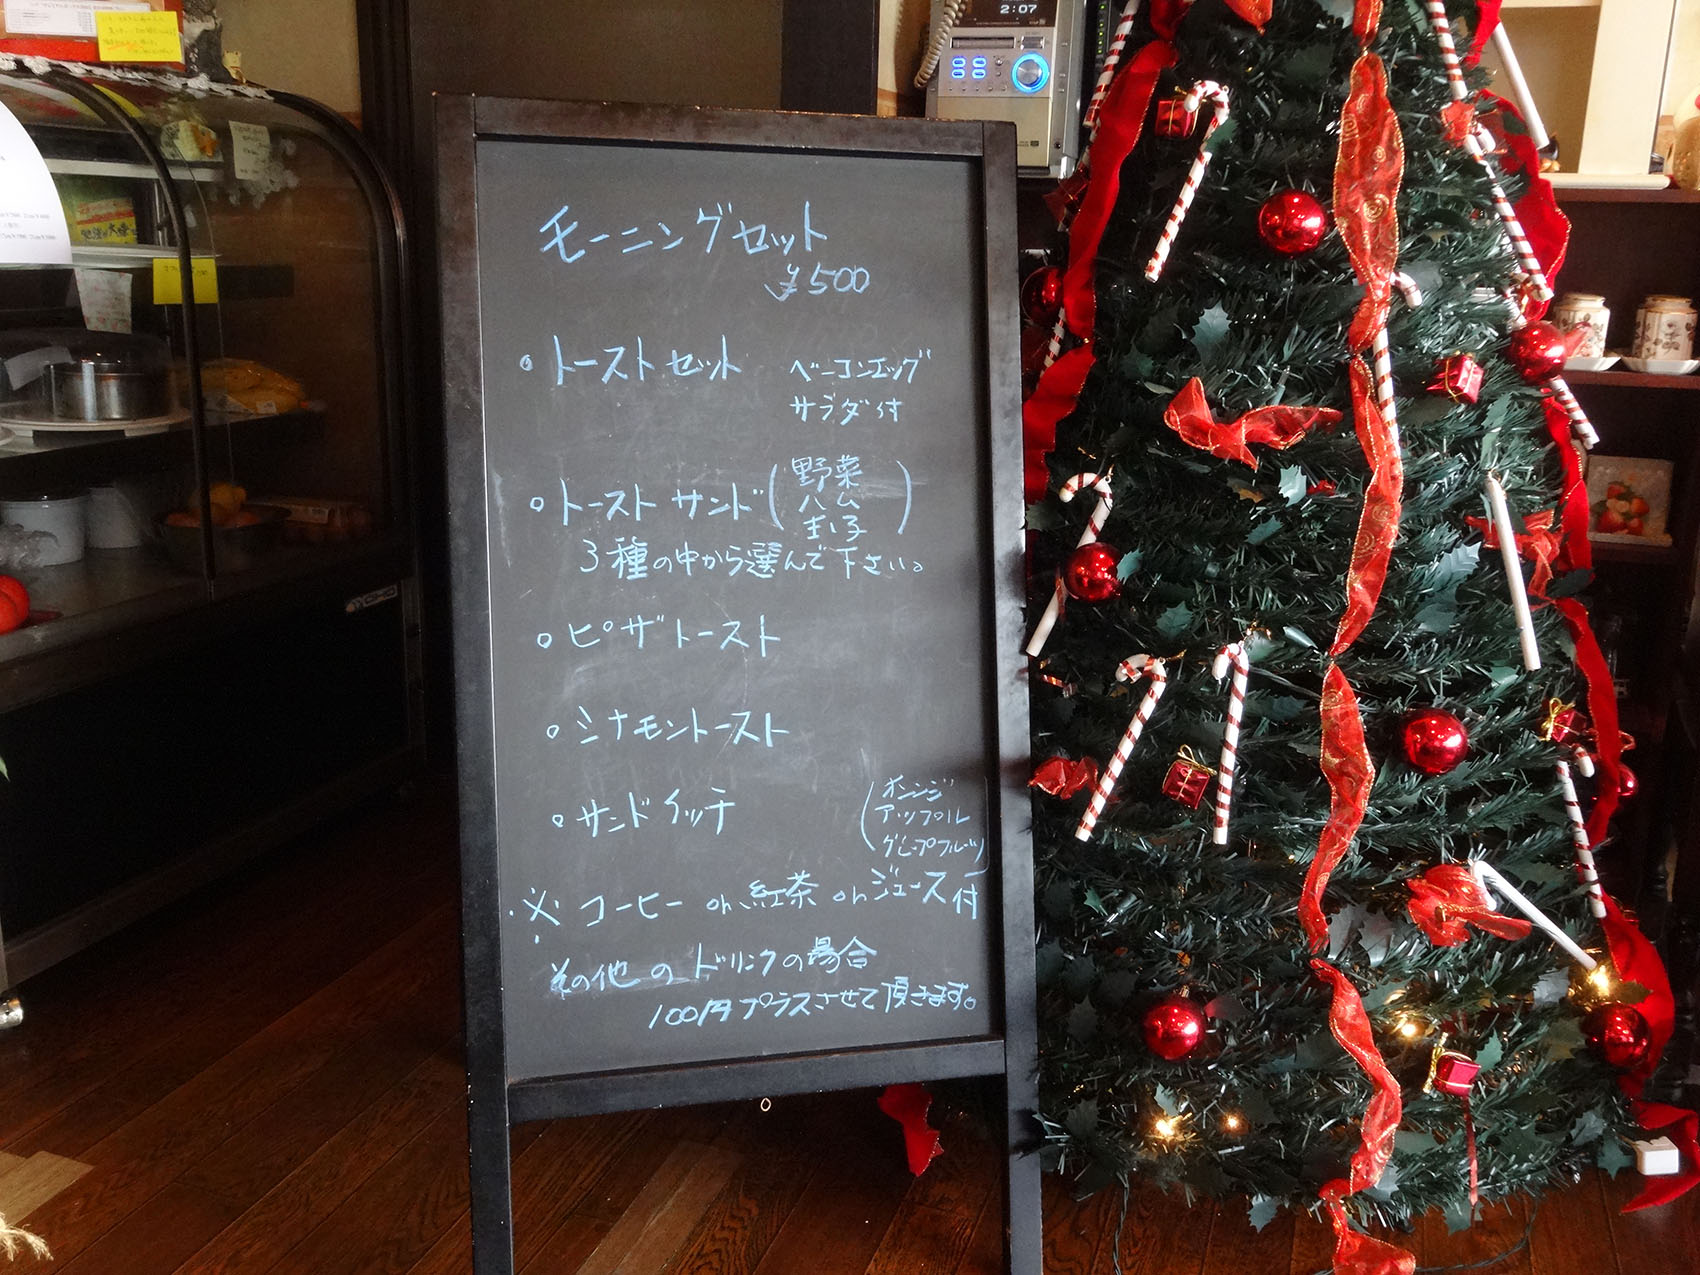 2:07
モーニングセット
¥500
○トーストセット ベーコンエッグ
サラダ付
○トーストサンド(野菜
ハム
玉子)
3種の中から選んで下さい。
○ピザトースト
○シナモントースト
○サンドイッチ
(オレンジ
アップル
グレープフルーツ)
※コーヒー or 紅茶 or ジュース付
その他のドリンクの場合
100円プラスさせて頂きます。